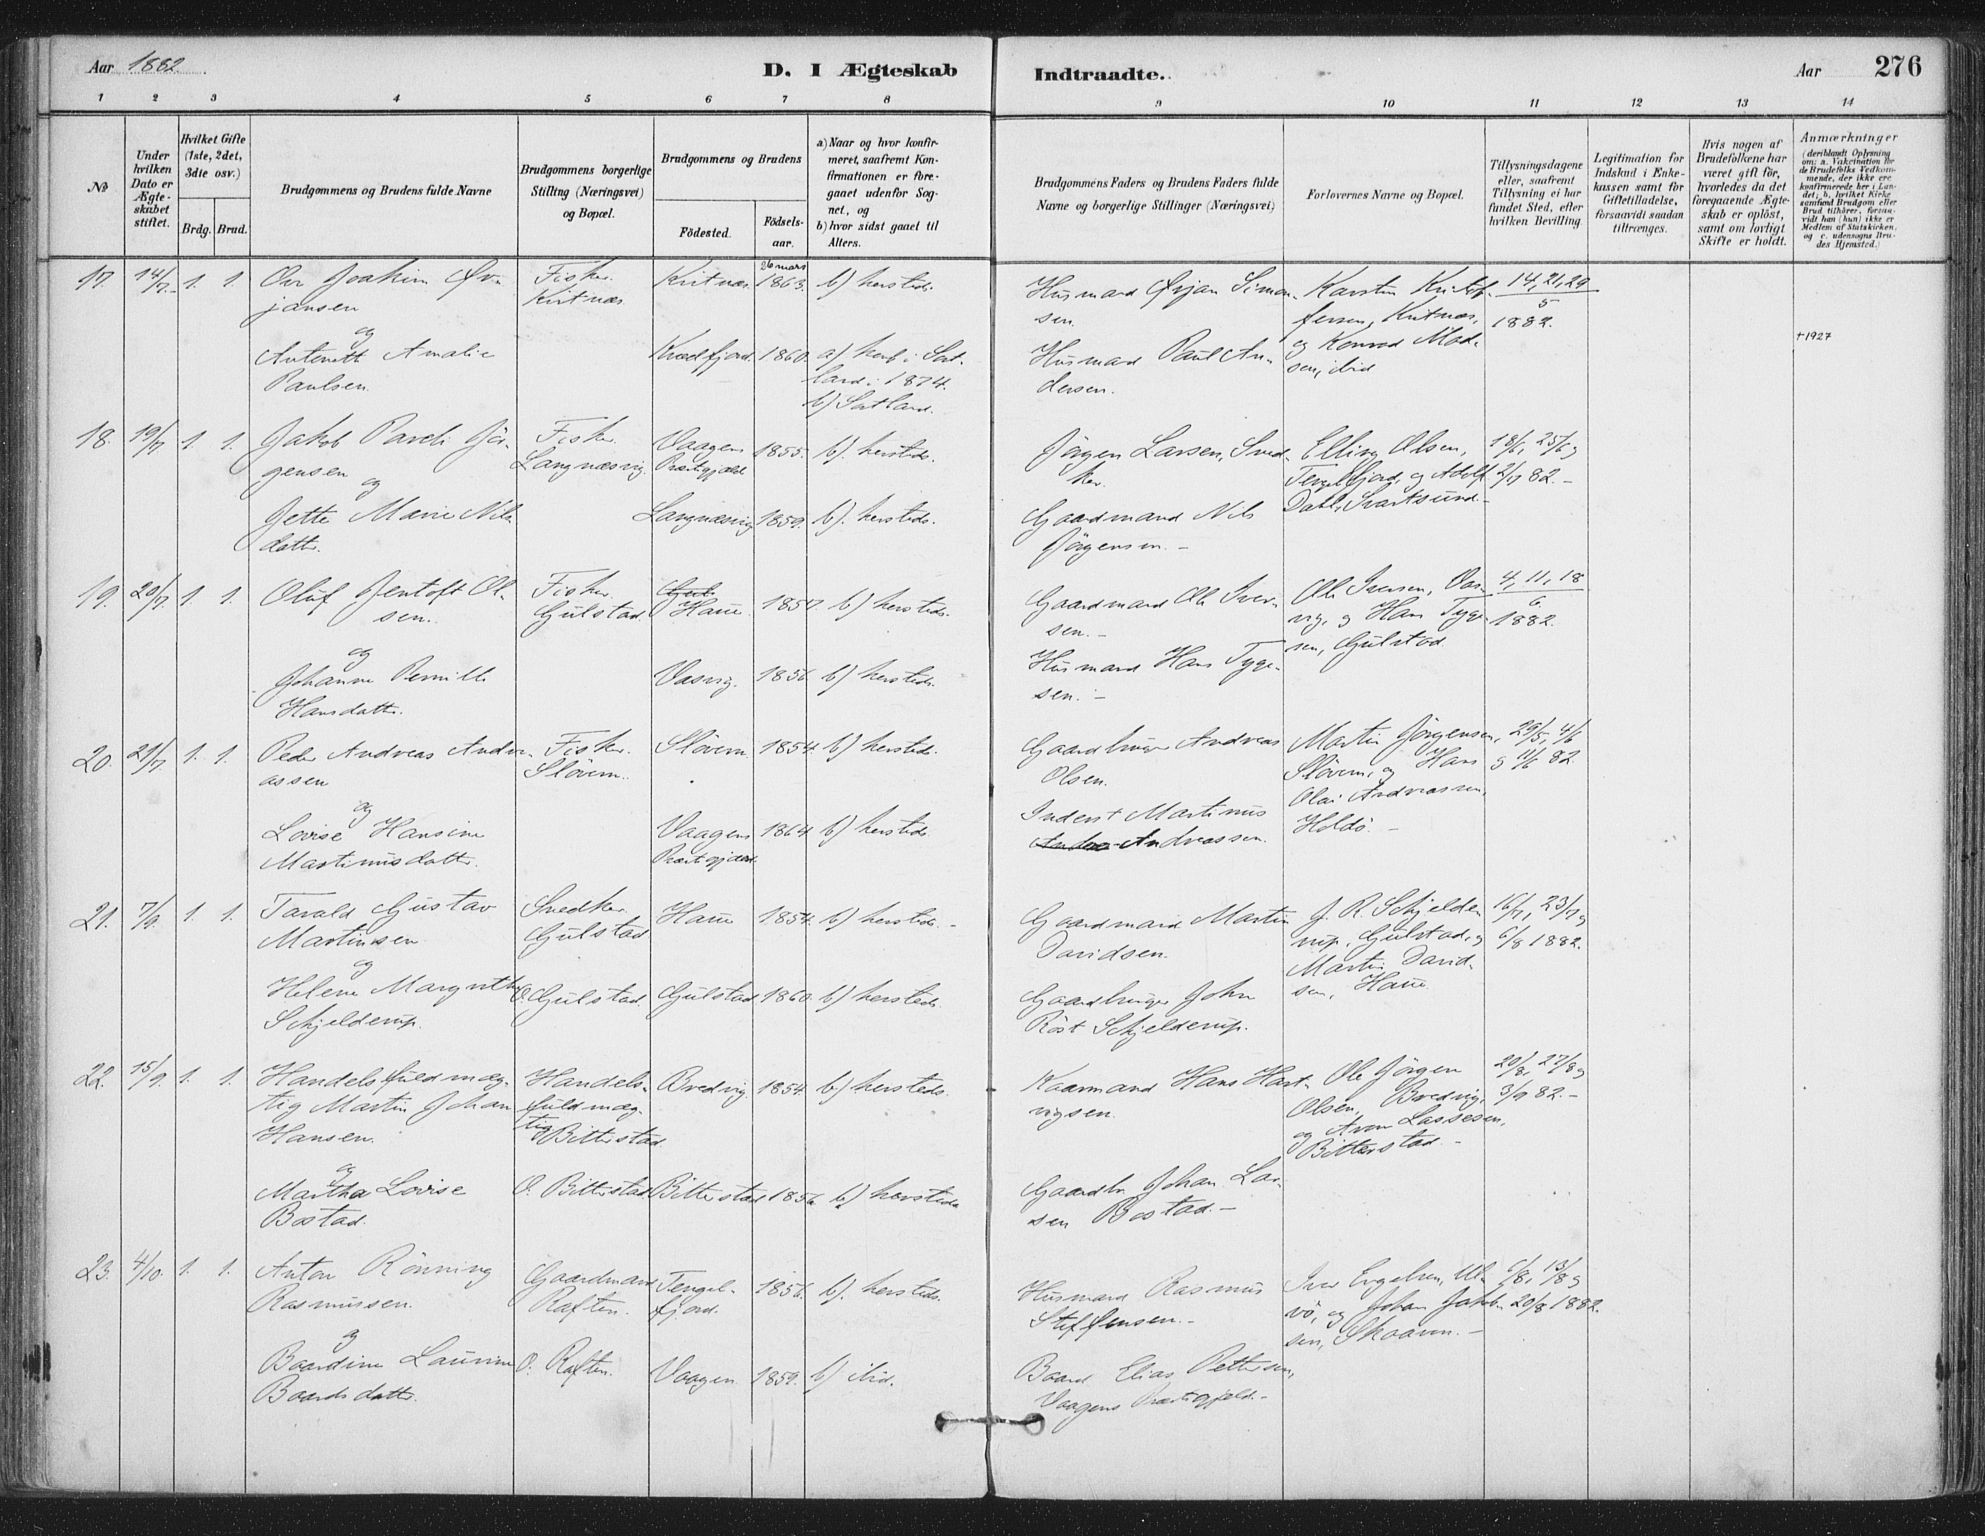 Aar 1882
D. I Ægteskab
Indtraadte.
Aar 276
1 2 3 4 5 6 7 8 9 10 11 12 13 14
№
Under
hvilken
Dato er
Ægte-
skabet
stiftet.
Hvilket Gifte
(1ste, 2det,
3die osv.)
Brdg. Brud.
Brudgommens og Brudens fulde Navne
Brudgommens borgerlige
Stilling (Næringsvei)
og Bopæl.
Brudgommens og Brudens
Fødested.
Fødsels-
aar.
a) Naar og hvor konfir-
meret, saafremt Kon-
firmationen er fore-
gaaet udenfor Sog-
net, og
b) hvor sidst gaaet til
Alters.
Brudgommens Faders og Brudens Faders fulde
Navne og borgerlige Stillinger (Næringsvei)
Forlovernes Navne og Bopæl.
Tillysningsdagene
eller, saafremt
Tillysning ei har
fundet Sted, efter
hvilken Bevilling
Legitimation for
Indskud i Enke-
kassen samt for
Giftetilladelse,
forsaavidt saadan
tiltrænges.
Hvis nogen af
Brudefolkene har
været gift før,
hvorledes da det
foregaaende Ægte-
skab er opløst,
samt om lovligt
Skifte er holdt.
Anmærkninger
(deriblandt Oplysning
om: a. Vakcination for
de Brudefolks Vedkom-
mende, der ikke ere
konfirmerede her i Lan-
det; b, hvilket Kirke-
samfund Brudgom eller
Brud tilhører, forsaa-
vidt han (hun) ikke er
Medlem af Statskirken,
og c. udensogns Bru-
des Hjemsted.)
17. 14/7. 1. 1.
Joakim Ør-
jansen
og
Antonett Amalie
Paulsen.
Fisker.
Kvitnæs.
Kvitnæs. 26 mars 1863. b) hersteds.
Kvædfjord. 1860. a) herb. i Sort-
land i 1874.
b) Sortland.
Husmand Ørjan Simon-
sen.
Husmand Paul An-
dersen.
Karsten Kristof-
fersen, Kvitnæs,
og Konrad Mad-
sen, ibid
14, 21, 29
5
1882.
+ 1927
18. 19/7 1. 1.
Jakob Pareli Jör-
gensen
og
Jette Marie Nils-
datter.
Fisker.
Langnæsvig.
Vaagens
Præstegjæld. 1855. b). hersteds.
Langnæsvig 1859. b). hersteds.
Jörgen Larsen, Sned-
ker.
Gaardmand Nils
Jörgensen. -
Elling Olsen,
Tengelfjord, og Adolf
Dahl, Svartsund. -
18/6, 25/6 og
2/7 82. -
19. 20/7 1. 1.
Oluf Jentoft Ol-
sen.
og
Johanne Pernille
Hansdatter.
Fisker.
Gulstad.
Haue. 1857. b) hersteds.
Vasvig. 1856 b) hersteds.
Gaardmand Ole Iver-
sen. -
Husmand Hans Tyge-
sen. -
Ole Iversen, Vas-
vig, og Hans Tyge-
sen, Gulstad.
4, 11, 18
6
1882.
20. 21/7 1. 1.
Peder Andreas Andre-
assen
og
Lovise Hansine
Martinusdatter.
Fisker.
Slöveren.
Slöveren 1854. b) hersteds.
Vaagens
Præstegjæld. 1864 b) hersteds
Gaardbruger Andreas
Olsen.
Inderst Martinus
Andreassen.
Martin Jörgensen,
Slöveren, og Hans
Olai Andreassen,
Holdö. -
29/5, 4/6
og 11/6 82.
21. 7/9. 1. 1.
Tarald Gustav
Martinssen
og
Helene Margrethe
Schjelderup.
Snedker.
Gulstad
O. Gulstad.
Haue 1854. b) hersteds. -
Gulstad 1860. b) hersteds.
Gaardmand Martin
Davidsen.
Gaardbruger John
Röst Schjelderup.
J. R. Schjelde-
rup, Gulstad, og
Martin David-
sen, Haue
16/7, 23/7 og
6/8 1882.
22. 15/9. 1. 1.
Handelsfuldmæg-
tig Martin Johan
Hansen.
og
Martha Lovise
Bostad.
Handels-
fuldmæg-
tig
Bitterstad
O. Bitterstad
Bredvig. 1854. b) hersteds.
Bitterstad 1856. b) hersteds
Kaarmand Hans Hart-
vigsen.
Gaardbr. Johan Lar-
sen Bostad. -
Ole Jörgen
Olsen, Bredvig,
og Aron Lassesen,
Bitterstad. -
20/8, 27/8 og
3/9 82. -
23. 4/10. 1. 1.
Anton Rönning
Rasmussen.
og
Baardine Laurine
Baardsdatter.
Gaardmand
Raften.
O. Raften.
Tengel-
fjord. 1856. b). hersteds.
Vaagen 1859. b) ibid.
Husmand Rasmus
Steffensen. -
Baard Elias Pettersen,
Vaagens Præstegjæld. -
Iver Engelsen, Ul-
vö, og Johan Jakob-
sen, Skaaren. -
6/8, 13/8 og
20/8 1882.